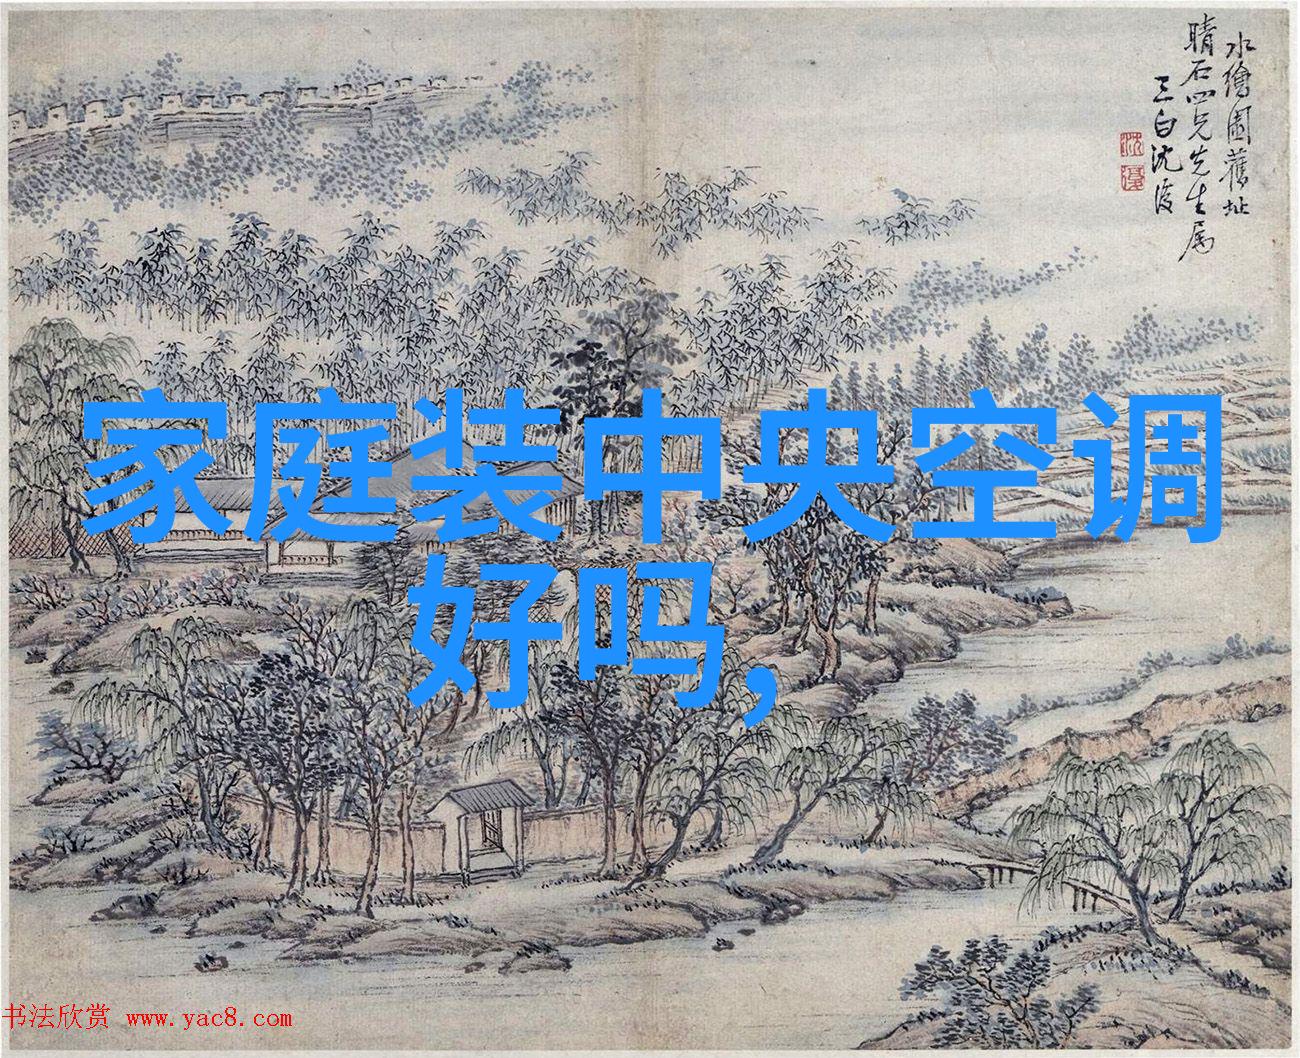 水繪園舊址
晴石四兄先生属
三白沈復
家庭装中央空调
好吗,
书法欣赏 www.yac8.com